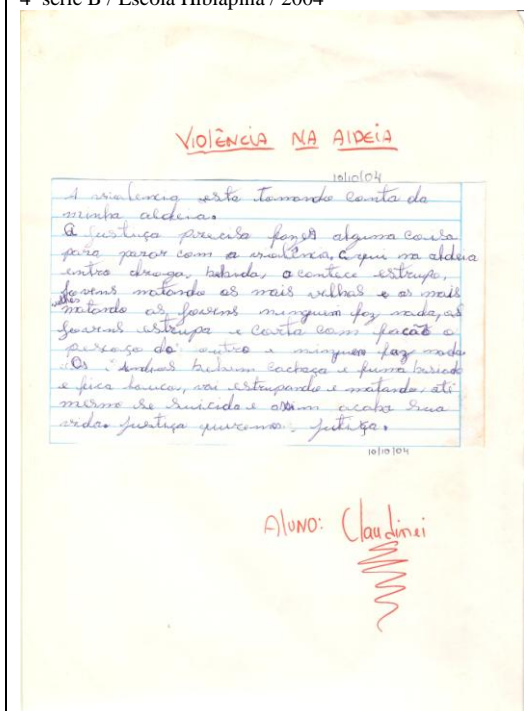 4ª série B / Escola Tibiapina / 2004
VIOLÊNCIA NA AlDEiA
10/10/04
A violencia esta tomando conta da
minha aldeia.
A justiça precisa fazer alguma coisa
para parar com a violência, a qui na aldeia
entra droga, bebida, acontece estrupo,
jovens matando os mais velhos e os mais
velhos
matando os jovens ninguem faz nada, os
jovens estrupa e corta com facão o
pescoço do outro e ninguem faz nada
Os indios bebem cachaça e fuma
e fica louco, vai estrupando e matando, até
mesmo se suicida e assim acaba sua
vida. justiça queremos, justiça.
10/10/04
AlUNO: Claudinei